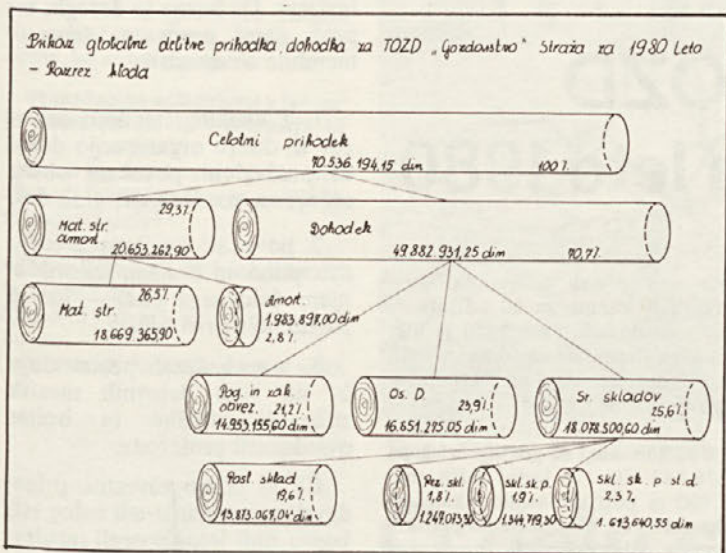 Prikaz globalne delitve prihodka, dohodka za TOZD „Gozdarstvo" Straža za 1980 leto
- Razrez hloda
Celotni prihodek
70.536.194,15 din 100 %
29,3 %
Mat. str.
amort.
20.653.262,90
Dohodek
49.882.931,25 din 70,7 %
26,5 %
Mat. str.
18.669.365,90
Amort.
1.983.897,00 din
2,8 %
Pog. in zak.
obvez. 21,2 %
14.953.155,60 din
Os. D.
23,9 %
16.851.275,05 din
Sr. skladov
25,6 %
18.078.500,60 din
Posl. sklad
19,6 %
13.873.067,04 din
Rez. skl.
1,8 %
1.247.073,30
Skl. sk. p.
1,9 %
1.344.719,30
Skl. sk. p. st. d.
2,3 %
1.613.640,55 din